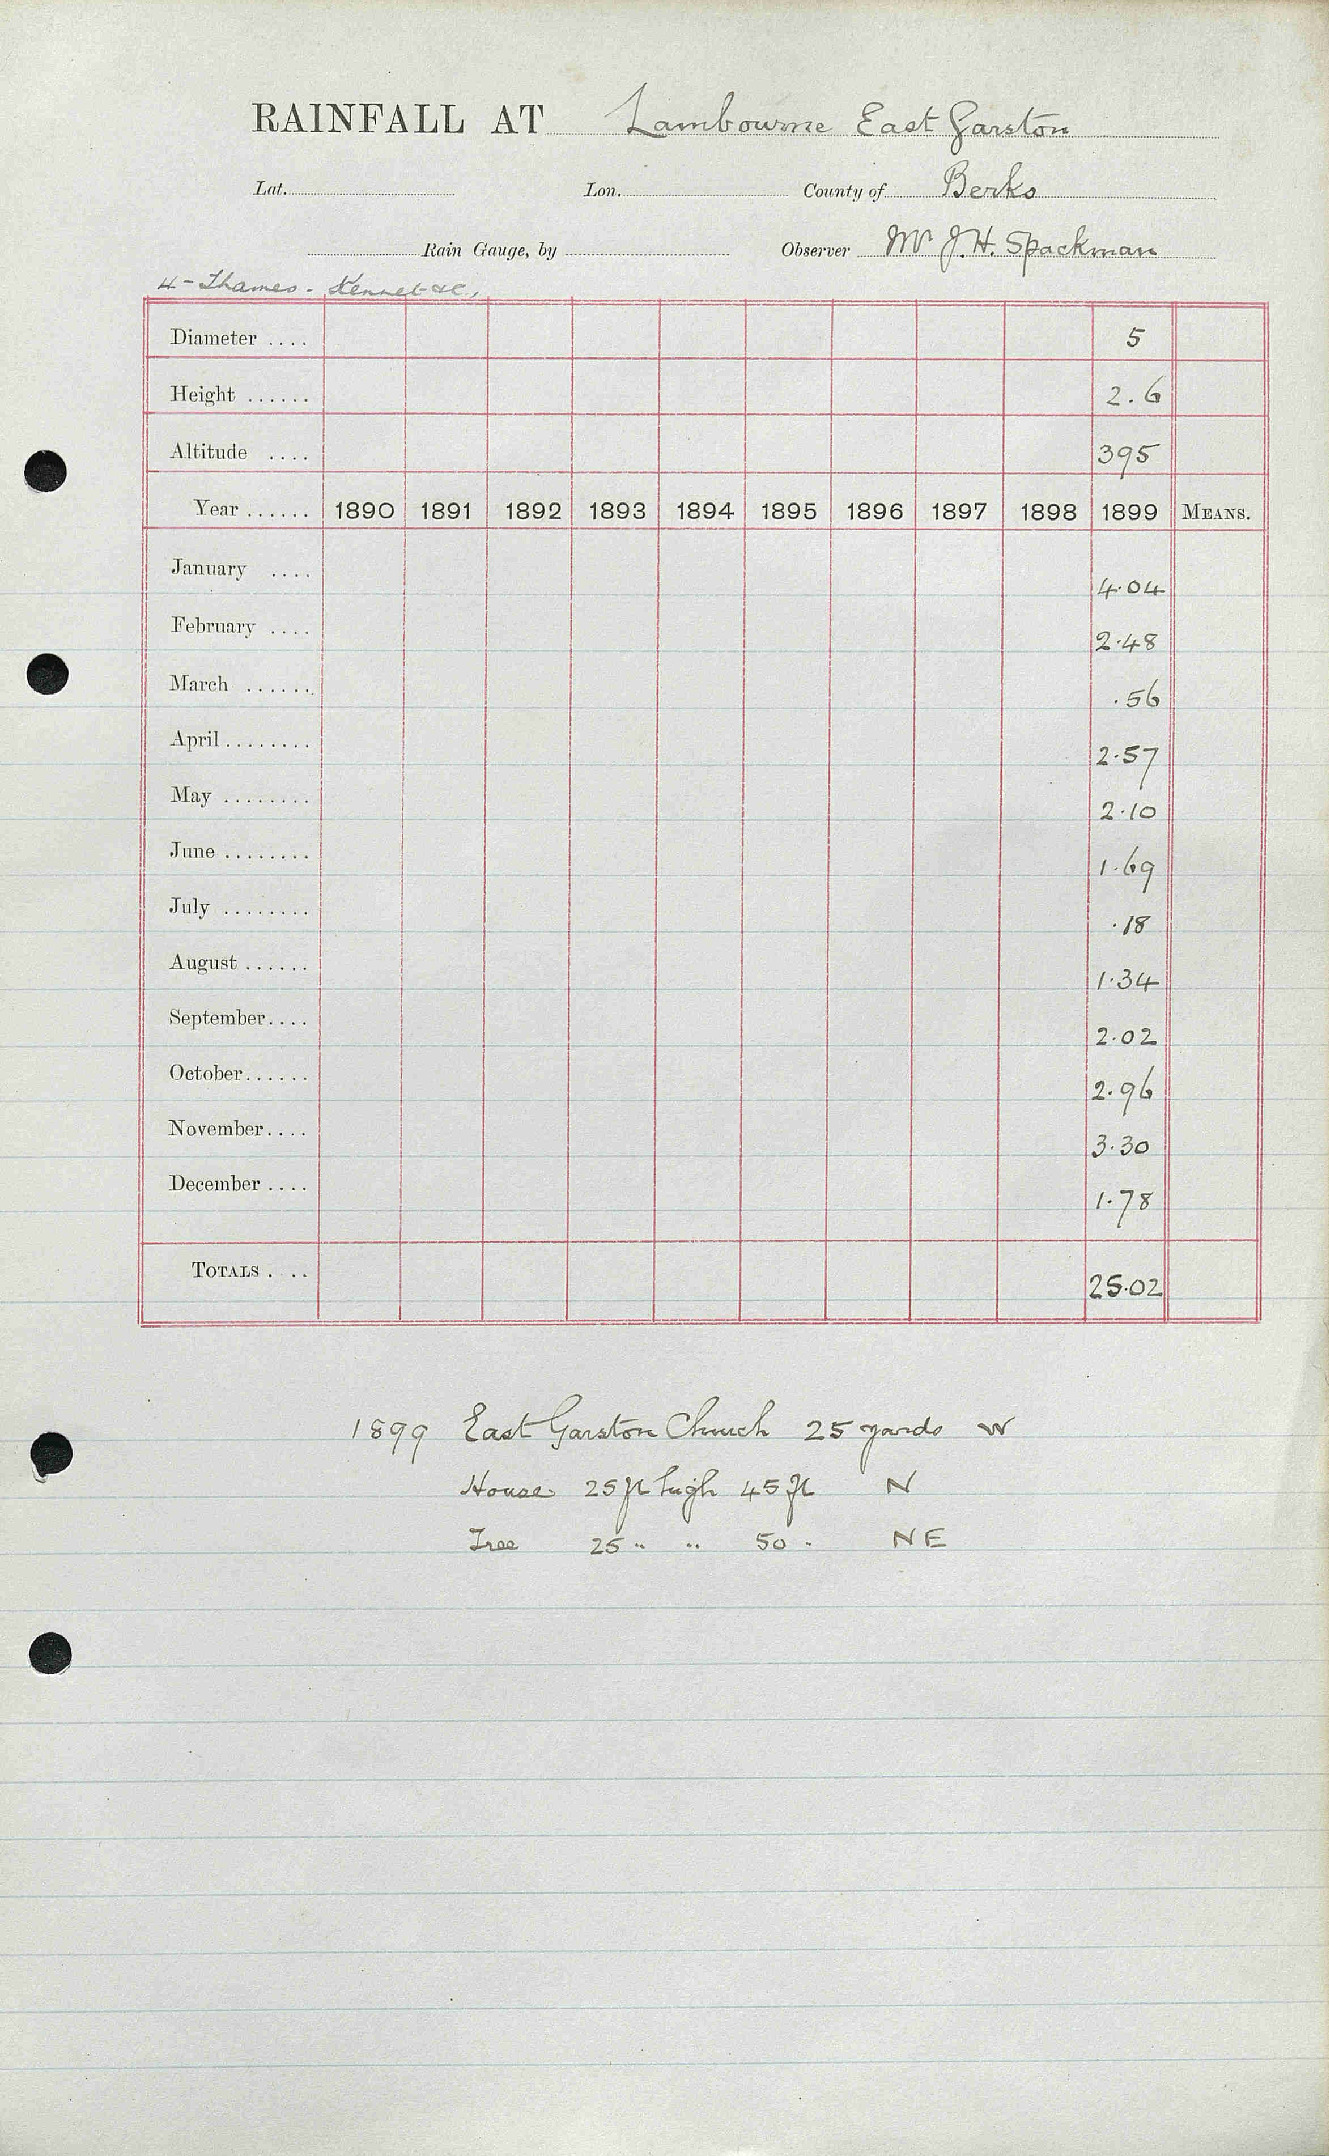 RAINFALL AT Lambourne East Garston
Lat. Lon. County of Berks
Rain Gauge, by Observer Mr J. H. Spackman
4 - Thames - Kennet &c.,
Diameter .... 5
Height ...... 2.6
Altitude .... 395
Year ...... 1890 1891 1892 1893 1894 1895 1896 1897 1898 1899 MEANS.
January .... 4.04
February .... 2.48
March ...... .56
April ........ 2.57
May ........ 2.10
June ........ 1.69
July ........ .18
August ...... 1.34
September .... 2.02
October ...... 2.96
November .... 3.30
December .... 1.78
TOTALS .... 25.02
1899 East Garston Church 25 yards W
House 25 ft high 45 ft N
Tree 25 " " 50 " NE